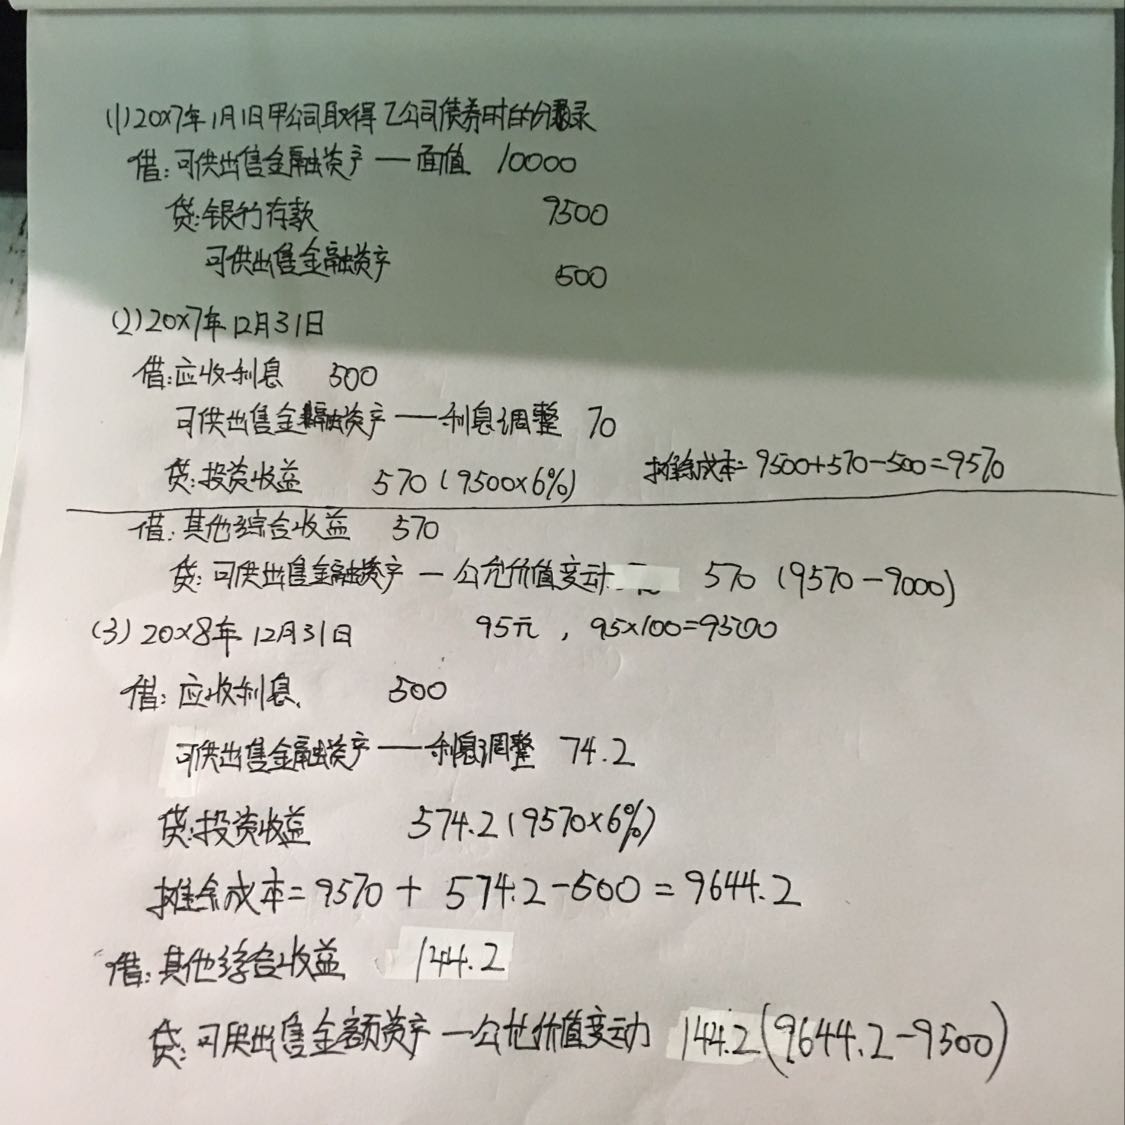 (1)20X7年1月1日甲公司取得乙公司债券时的分录
借:可供出售金融资产——面值 10000
贷:银行存款 9500
可供出售金融资产 500
(2)20X7年12月31日
借:应收利息 500
可供出售金融资产——利息调整 70
贷:投资收益 570(9500×6%) 摊余成本=9500+570-500=9570
借:其他综合收益 570
贷:可供出售金融资产—公允价值变动 570 (9570-9000)
(3)20X8年12月31日 95元,95×100=9500
借:应收利息 500
可供出售金融资产——利息调整 74.2
贷:投资收益 574.2(9570×6%)
摊余成本=9570+574.2-500=9644.2
借:其他综合收益 144.2
贷:可供出售金额资产—公允价值变动 144.2(9644.2-9500)